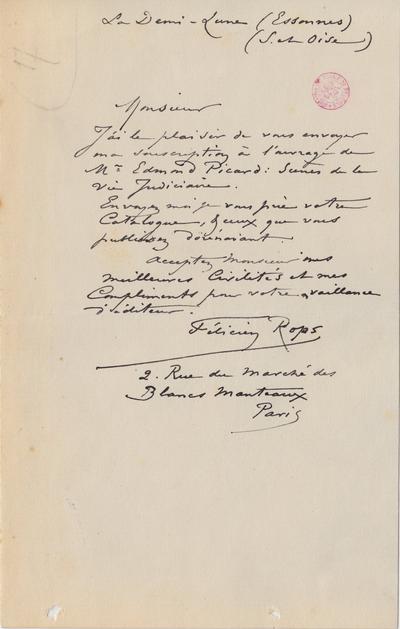 La Demi-Lune (Essonnes)
(S. et Oise)
Monsieur
J'ai le plaisir de vous envoyer
ma souscription à l'ouvrage de
Mr Edmond Picard: Scènes de la
vie Judiciaire.
Envoyez moi je vous prie votre
Catalogue, & ceux que vous
publierez dorénavant.
Acceptez Monsieur mes
meilleures Civilités et mes
Compliments pour votre vaillance
d'éditeur.
Félicien Rops
2. Rue du Marché des
Blancs Manteaux
Paris